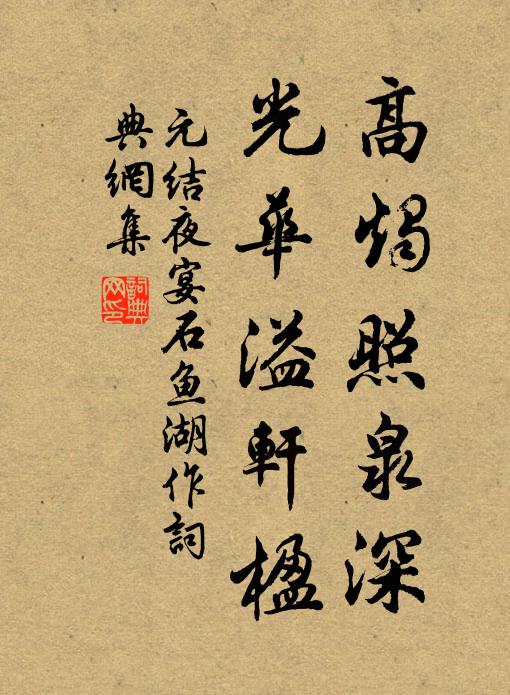 高燭照泉深
光華溢軒楹
元结夜宴石鱼湖作詞
典網集
詞典网印